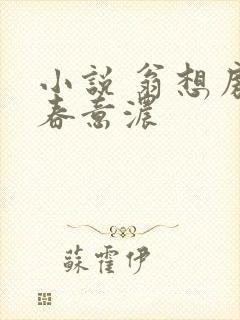 小說 翁想
春意濃
蘇霍伊